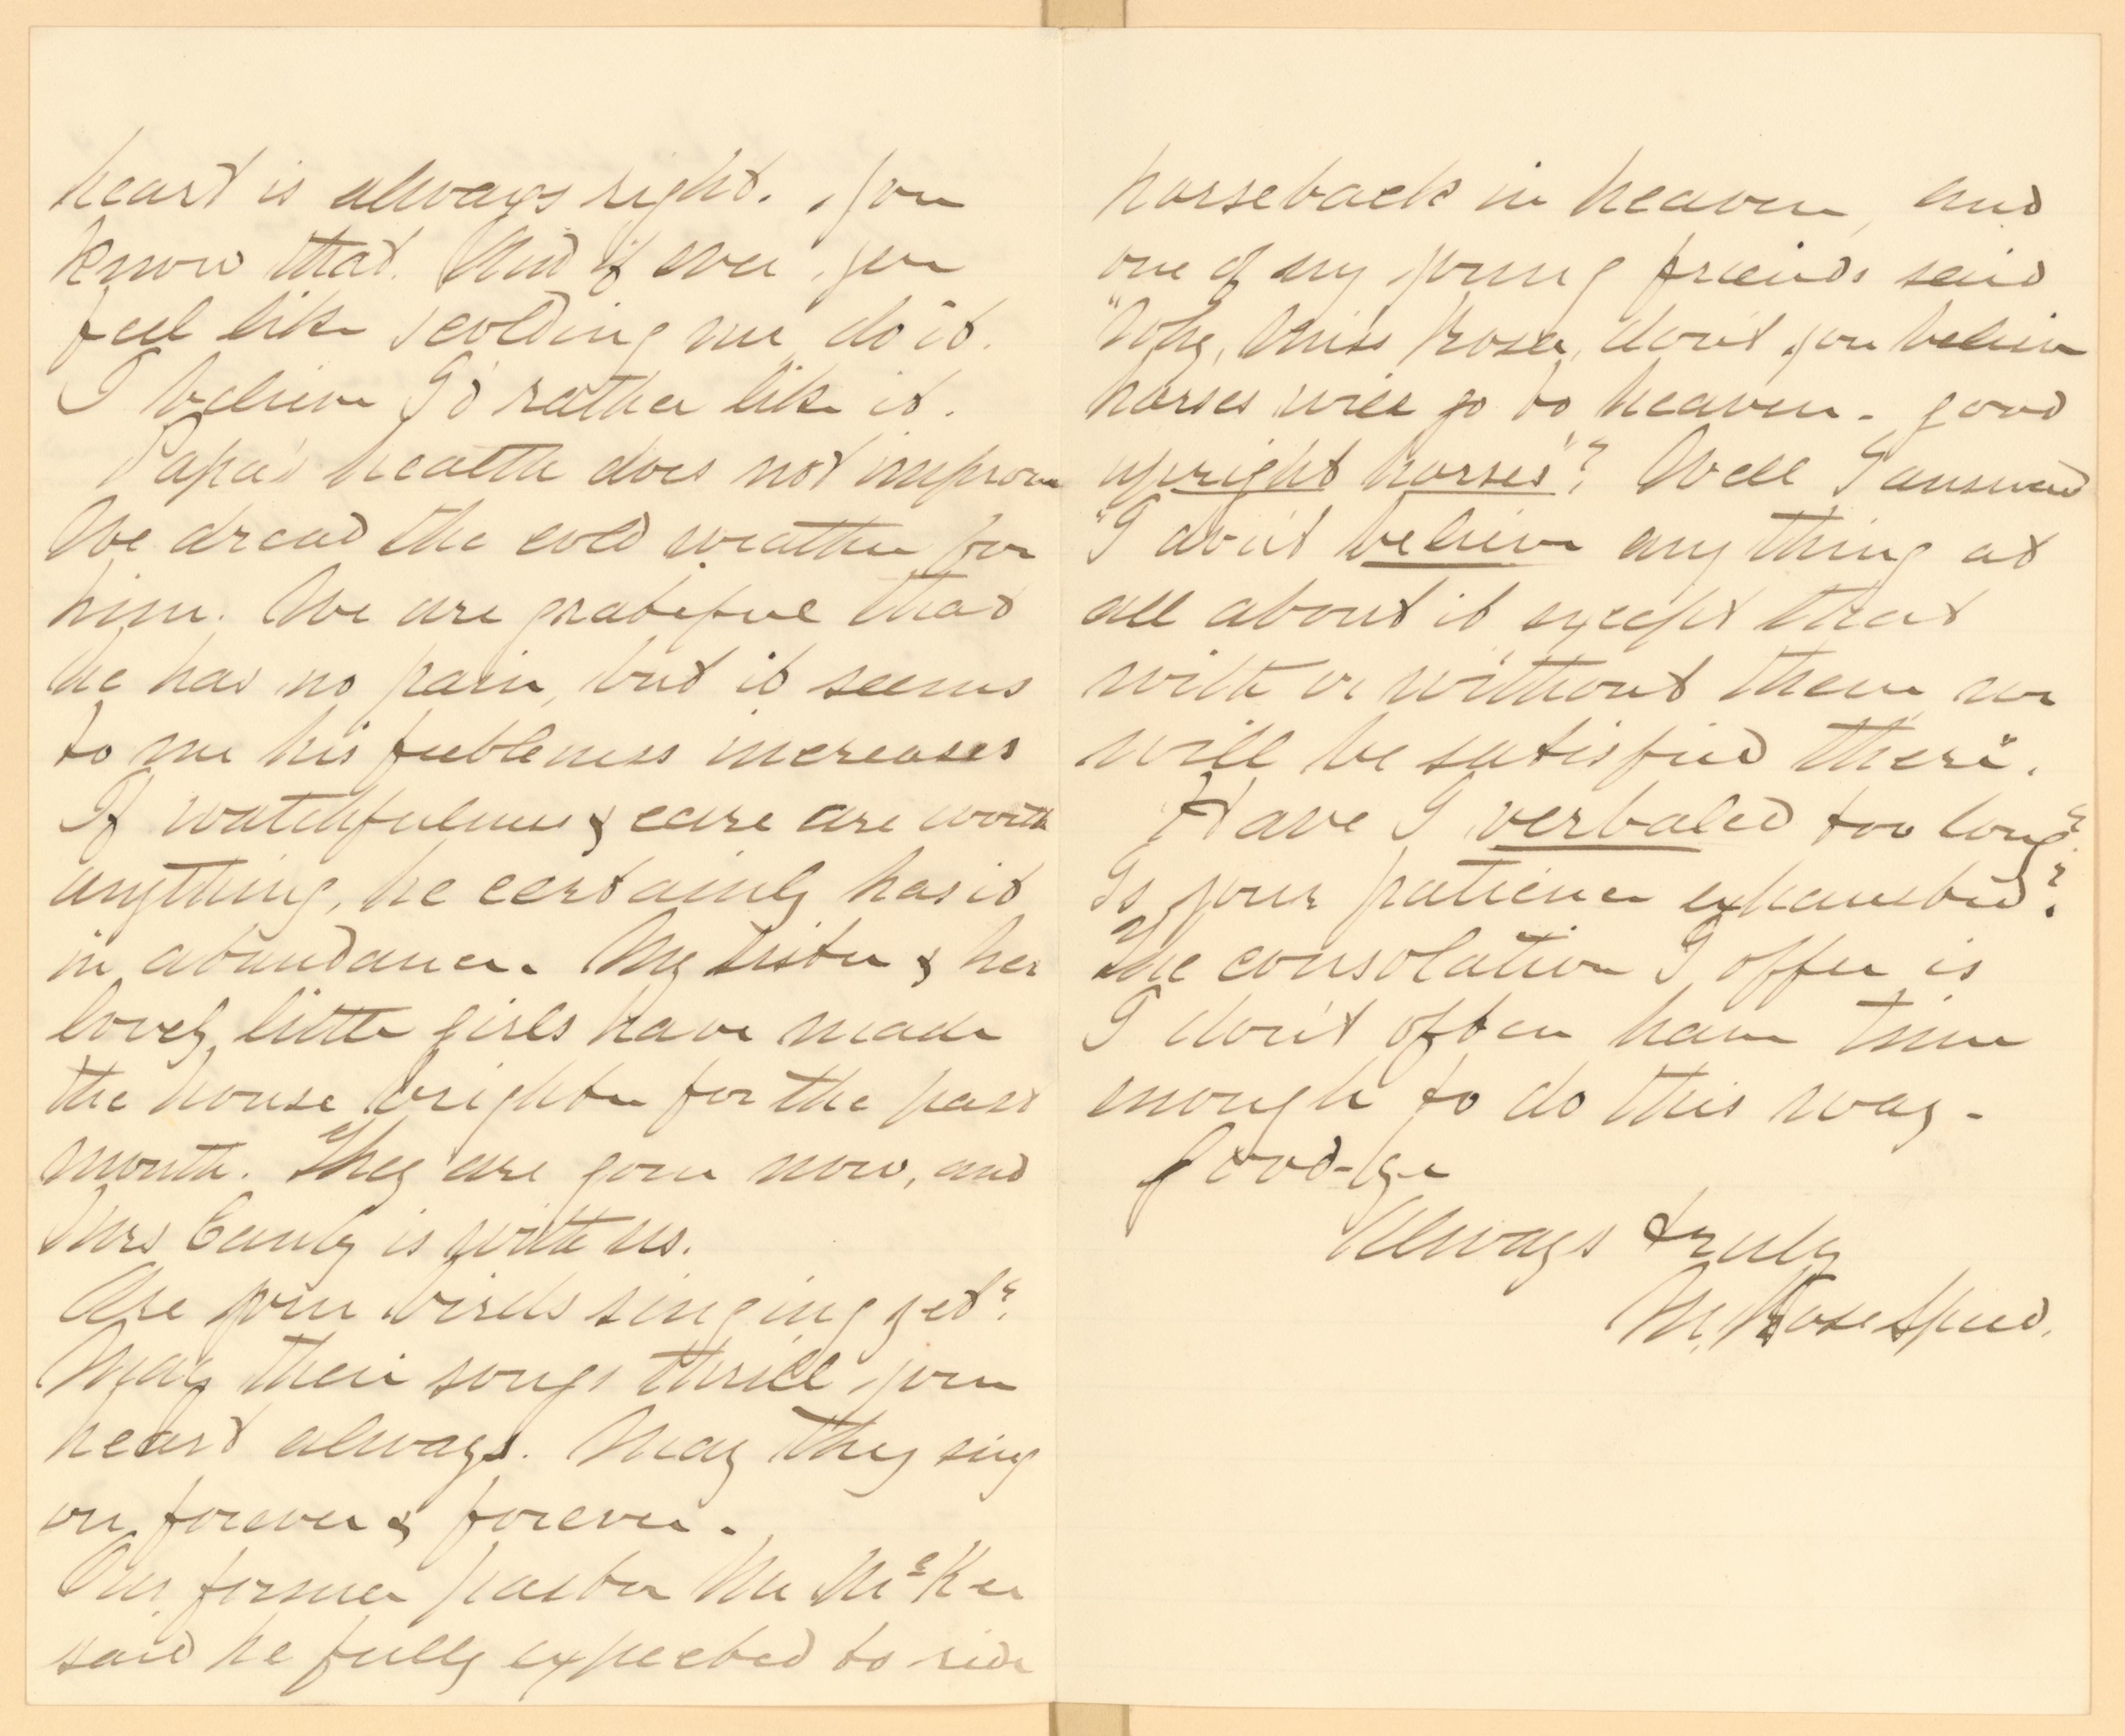 heart is always right. You
know that. And if ever you
feel like scolding me, do it.
I believe I'd rather like it.
Papa's health does not improve
We dread the cold weather for
him. We are grateful that
he has no pain, but it seems
to me his feebleness increases
If watchfulness & care are worth
anything, he certainly has it
in abundance. My sister & her
lovely little girls have made
the house brighter for the past
month. They are gone now, and
Mrs Canby is with us.
Are your birds singing yet?
May their songs thrill your
heart always. May they sing
on forever & forever.
Our former pastor Mr McKee
said he fully expected to ride
horseback in heaven, and
one of my young friends said
"Why, Miss Rosa, don't you believe
horses will go to heaven - good
upright horses"? Well I answered
"I don't believe any thing at
all about it except that
with or without them we
will be satisfied there".
Have I verbaled too long?
Is your patience exhausted?
The consolation I offer is
I don't often have time
enough to do this way -
Good-bye
Always truly
M. Rose Speed.